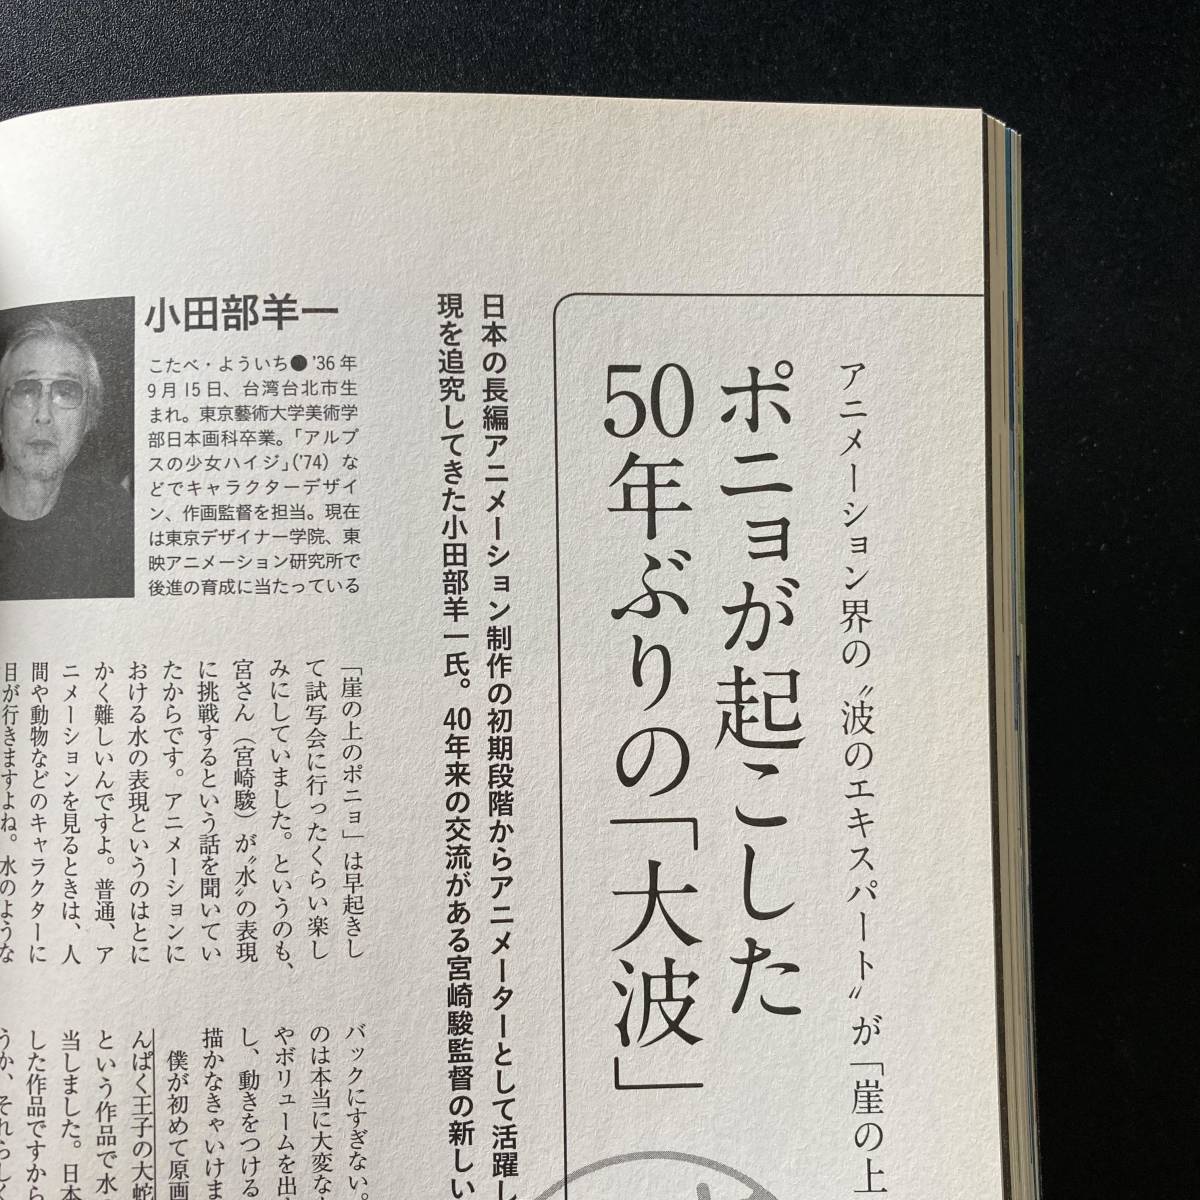 アニメーション界の〝波のエキスパート〟が「崖の上
ポニョが起こした
50年ぶりの「大波」
日本の長編アニメーション制作の初期段階からアニメーターとして活躍し
現を追究してきた小田部羊一氏。40年来の交流がある宮崎駿監督の新しい
小田部羊一
こたべ・よういち●'36年
9月15日、台湾台北市生
まれ。東京藝術大学美術学
部日本画科卒業。「アルプ
スの少女ハイジ」('74) な
どでキャラクターデザイ
ン、作画監督を担当。現在
は東京デザイナー学院、東
映アニメーション研究所で
後進の育成に当たっている
「崖の上のポニョ」は早起きし
て試写会に行ったくらい楽し
みにしていました。というのも、
宮さん（宮崎駿）が〝水〟の表現
に挑戦するという話を聞いてい
たからです。アニメーションに
おける水の表現というのはとに
かく難しいんですよ。普通、ア
ニメーションを見るときは、人
間や動物などのキャラクターに
目が行きますよね。水のような
バックにすぎない。
のは本当に大変な
やボリュームを出
し、動きをつける
描かなきゃいけま
僕が初めて原画
んぱく王子の大蛇
という作品で水
当しました。日本
した作品ですから
うか、それらしく